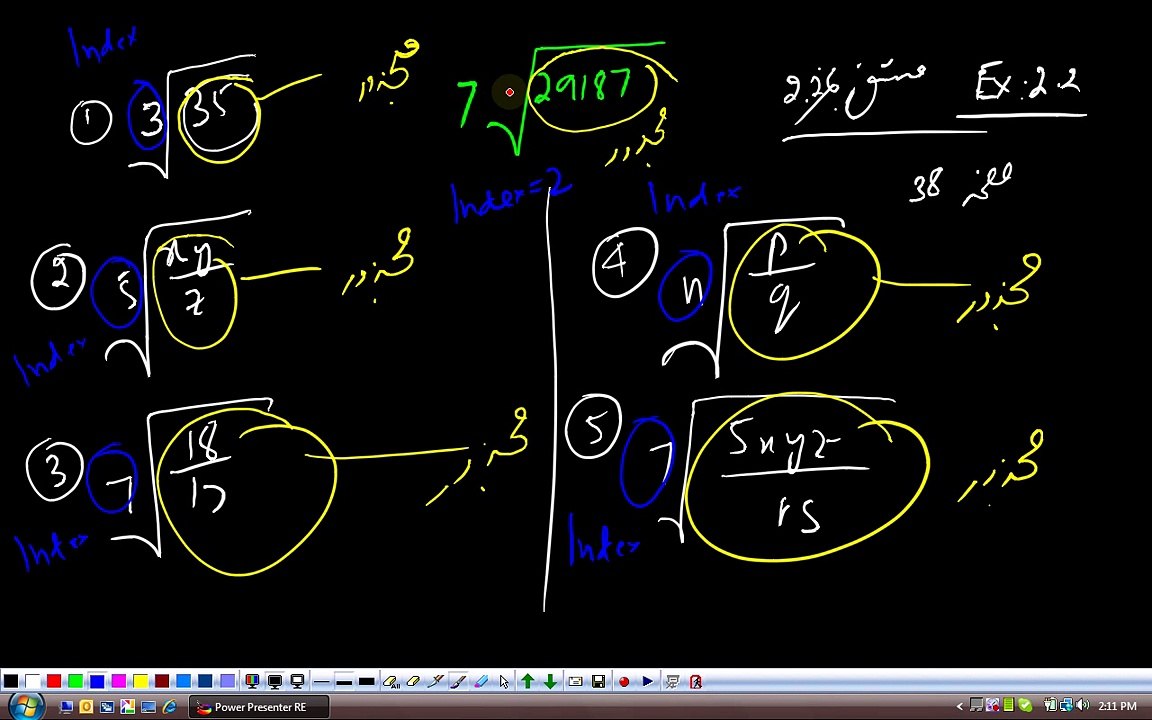 Index
① ∛35 مجذور
7 √29187 مجذور
Index=2
Ex: 2.2
مشق 2.26
38
Index
② ⁵√(xy/z) مجذور
Index
④ ⁿ√(p/q) مجذور
③ ⁷√(18/17) مجذور
Index
⑤ ⁷√(5xyz/rs) مجذور
Index
All
Power Presenter RE
2:11 PM